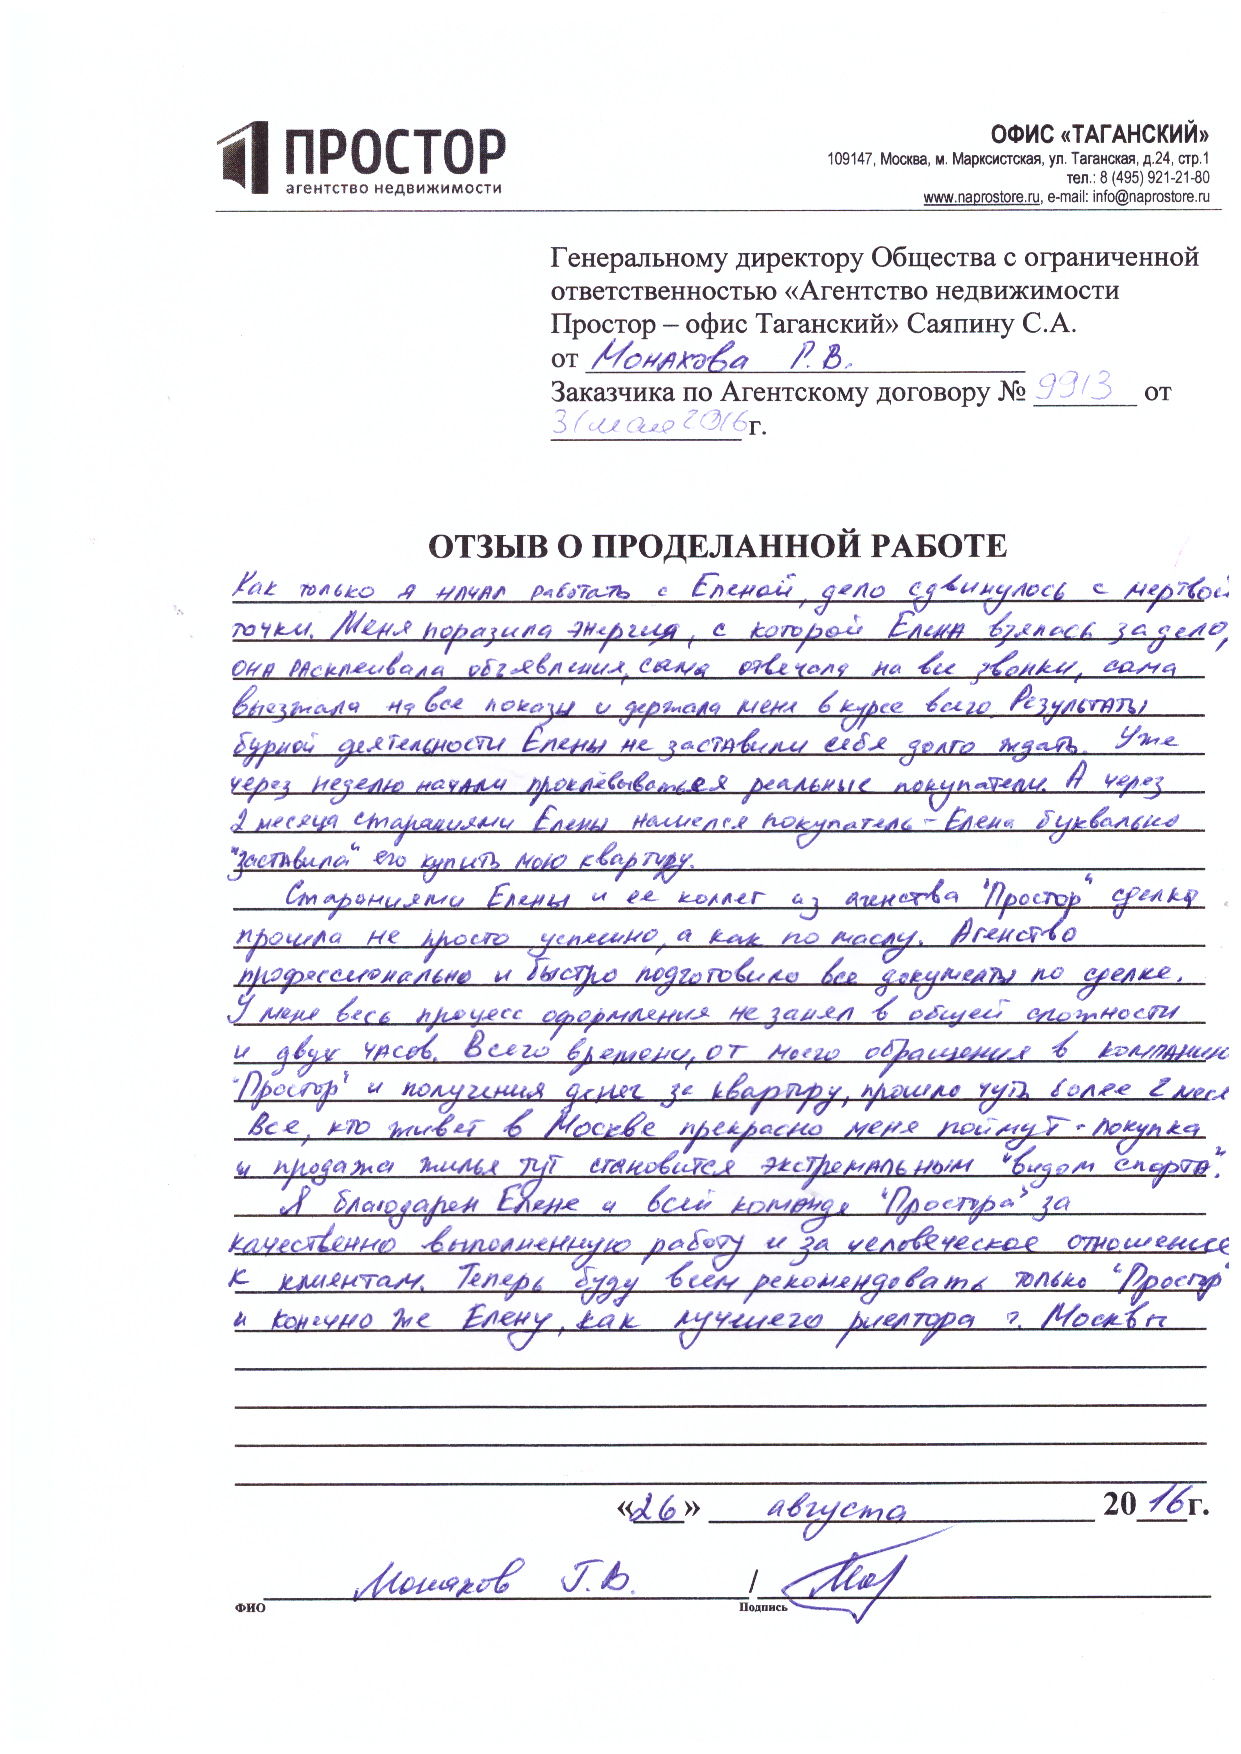 ПРОСТОР
агентство недвижимости
ОФИС «ТАГАНСКИЙ»
109147, Москва, м. Марксистская, ул. Таганская, д.24, стр.1
тел.: 8 (495) 921-21-80
www.naprostore.ru, e-mail: info@naprostore.ru
Генеральному директору Общества с ограниченной
ответственностью «Агентство недвижимости
Простор – офис Таганский» Саяпину С.А.
от Монахова Г. В.
Заказчика по Агентскому договору № 9913 от
31 мая 2016 г.
ОТЗЫВ О ПРОДЕЛАННОЙ РАБОТЕ
Как только я начал работать с Еленой, дело сдвинулось с мертвой
точки. Меня поразила энергия, с которой Елена взялась за дело,
она расклеивала объявления, сама отвечала на все звонки, сама
выезжала на все показы и держала меня в курсе всего. Результаты
бурной деятельности Елены не заставили себя долго ждать. Уже
через неделю начали проклёвываться реальные покупатели. А через
2 месяца стараниями Елены нашелся покупатель - Елена буквально
"заставила" его купить мою квартиру.
Стараниями Елены и ее коллег из агенства "Простор" сделка
прошла не просто успешно, а как по маслу. Агенство
профессионально и быстро подготовило все документы по сделке.
У меня весь процесс оформления не занял в общей сложности
и двух часов. Всего времени, от моего обращения в компанию
"Простор" и получения денег за квартиру, прошло чуть более 2 меся
Все, кто живет в Москве прекрасно меня поймут - покупка
и продажа жилья тут становится экстремальным "видом спорта".
Я благодарен Елене и всей команде "Простора" за
качественно выполненную работу и за человеческое отношение
к клиентам. Теперь буду всем рекомендовать только "Простор"
и конечно же Елену, как лучшего риелтора г. Москвы
«26» августа 2016г.
Монахов Г.В. /
ФИО Подпись